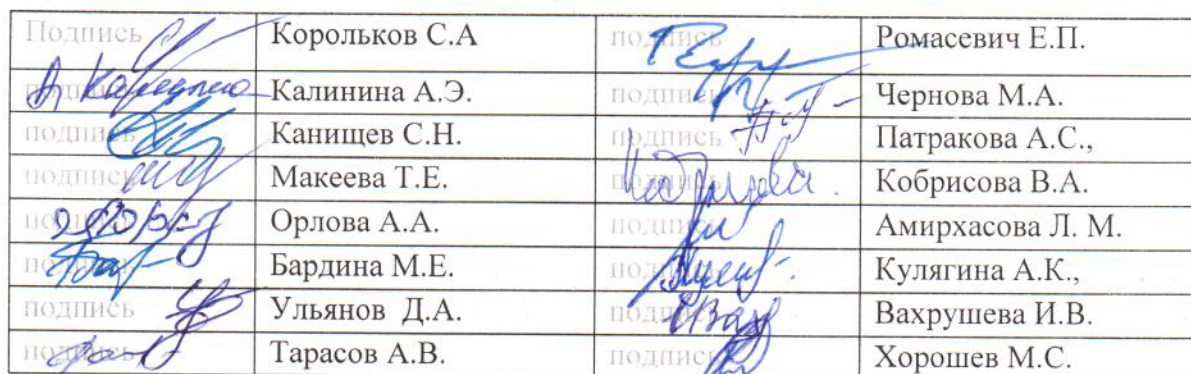 Подпись Корольков С.А подпись Ромасевич Е.П.
подпись Калинина А.Э. подпись Чернова М.А.
подпись Канищев С.Н. подпись Патракова А.С.,
подпись Макеева Т.Е. подпись Кобрисова В.А.
подпись Орлова А.А. подпись Амирхасова Л. М.
подпись Бардина М.Е. подпись Кулягина А.К.,
подпись Ульянов Д.А. подпись Вахрушева И.В.
подпись Тарасов А.В. подпись Хорошев М.С.